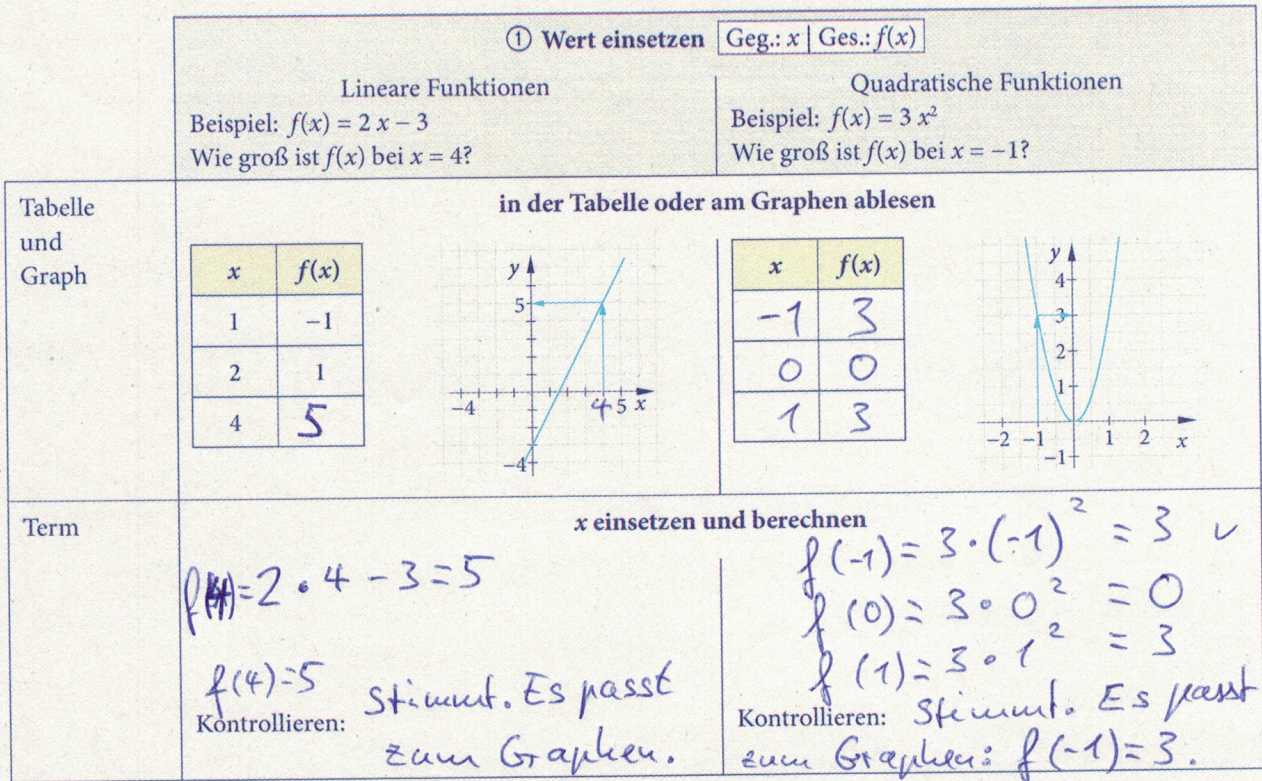 ① Wert einsetzen Geg.: x | Ges.: f(x)
Lineare Funktionen
Beispiel: f(x) = 2 x – 3
Wie groß ist f(x) bei x = 4?
Quadratische Funktionen
Beispiel: f(x) = 3 x²
Wie groß ist f(x) bei x = –1?
Tabelle
und
Graph
in der Tabelle oder am Graphen ablesen
x f(x)
1 –1
2 1
4 5
y
5
–4 4 5 x
–4
x f(x)
-1 3
0 0
1 3
y
4
3
2
1
–2 –1 1 2 x
–1
Term
x einsetzen und berechnen
f(4)=2 · 4 - 3 = 5
f(4)=5
Kontrollieren: Stimmt. Es passt
zum Graphen.
f(-1) = 3 · (-1)² = 3 ✓
f(0) = 3 · 0² = 0
f(1) = 3 · 1² = 3
Kontrollieren: Stimmt. Es passt
zum Graphen: f(-1) = 3.